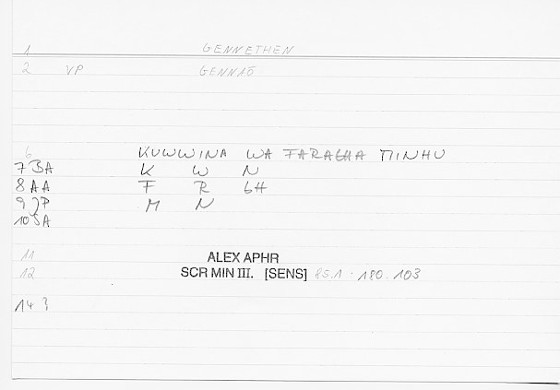 1 GENNETHEN
2 VP GENNAŌ
6 KUWWINA WA FARAGHA MINHU
7 BA K W N
8 AA F R GH
9 JP M N
10 SA
11 ALEX APHR
12 SCR MIN III. [SENS] 85.1 · 180.103
14 ?